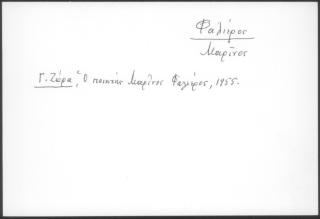 Φαλιέρος
Μαρῖνος
Γ. Ζώρα, Ὁ ποιητὴς Μαρῖνος Φαλιέρος, 1955.